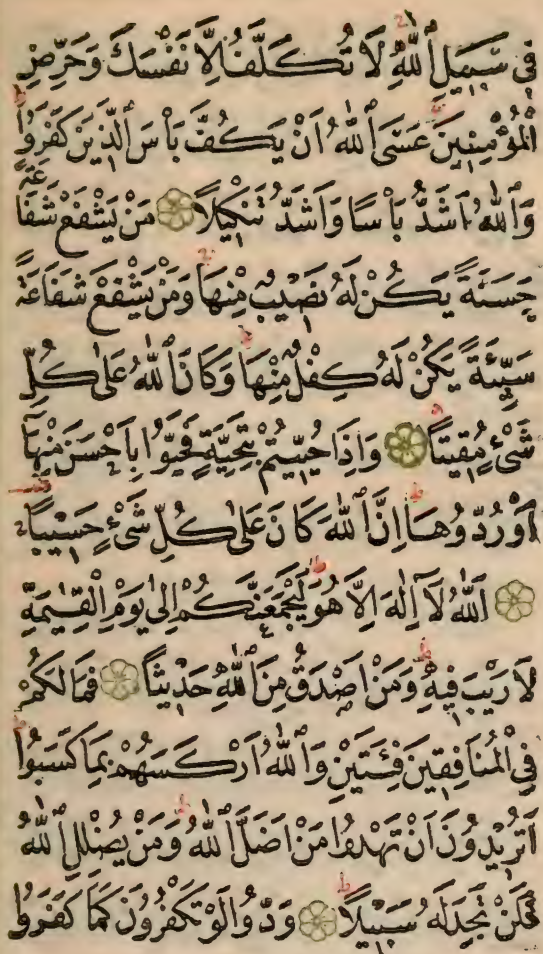 فِى سَبِيلِ ٱللّٰهِ لَا تُكَلَّفُ اِلَّا نَفْسَكَ وَحَرِّضِ
ٱلْمُؤْمِنِينَ عَسَى ٱللّٰهُ اَنْ يَكُفَّ بَاْسَ ٱلَّذِينَ كَفَرُوا
وَٱللّٰهُ اَشَدُّ بَاْسًا وَاَشَدُّ تَنْكِيلًا مَنْ يَشْفَعْ شَفَاعَةً
حَسَنَةً يَكُنْ لَهُ نَصِيبٌ مِنْهَا وَمَنْ يَشْفَعْ شَفَاعَةً
سَيِّئَةً يَكُنْ لَهُ كِفْلٌ مِنْهَا وَكَانَ ٱللّٰهُ عَلٰى كُلِّ
شَىْءٍ مُقِيتًا وَاِذَا حُيِّيتُمْ بِتَحِيَّةٍ فَحَيُّوا بِاَحْسَنَ مِنْهَآ
اَوْ رُدُّوهَا اِنَّ ٱللّٰهَ كَانَ عَلٰى كُلِّ شَىْءٍ حَسِيبًا
اَللّٰهُ لَآ اِلٰهَ اِلَّا هُوَ لَيَجْمَعَنَّكُمْ اِلٰى يَوْمِ الْقِيٰمَةِ
لَا رَيْبَ فِيهِ وَمَنْ اَصْدَقُ مِنَ ٱللّٰهِ حَدِيثًا فَمَا لَكُمْ
فِى ٱلْمُنَافِقِينَ فِئَتَيْنِ وَٱللّٰهُ اَرْكَسَهُمْ بِمَا كَسَبُوا
اَتُرِيدُونَ اَنْ تَهْدُوا مَنْ اَضَلَّ ٱللّٰهُ وَمَنْ يُضْلِلِ ٱللّٰهُ
فَلَنْ تَجِدَ لَهُ سَبِيلًا وَدُّوا لَوْ تَكْفُرُونَ كَمَا كَفَرُوا